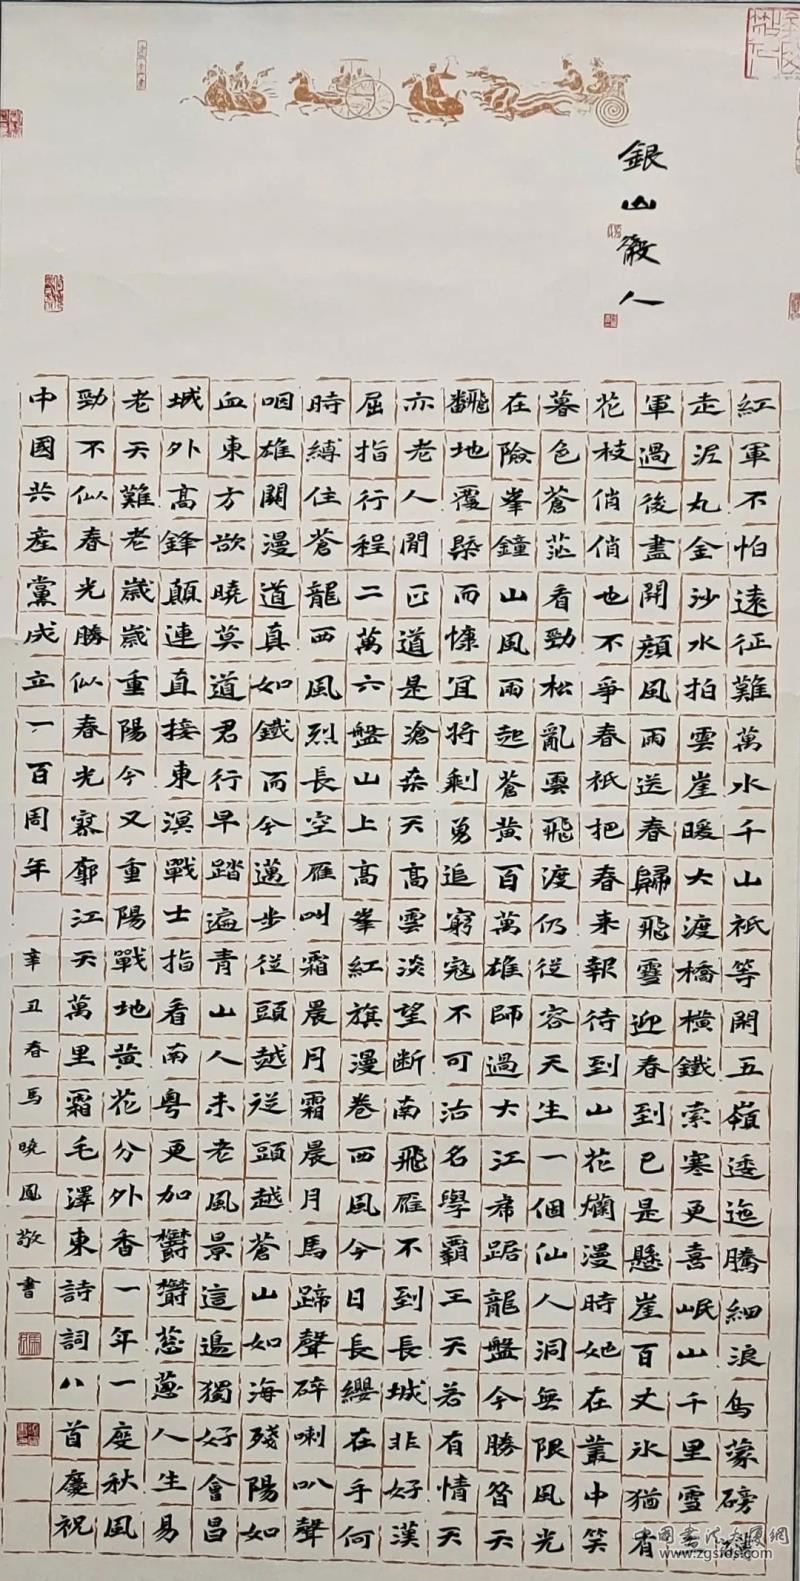 銀山散人
紅軍不怕遠征難萬水千山祇等閒五嶺逶迤騰細浪烏蒙磅礴
走泥丸金沙水拍雲崖暖大渡橋橫鐵索寒更喜岷山千里雪三
軍過後盡開顏風雨送春歸飛雪迎春到已是懸崖百丈冰猶有
花枝俏俏也不爭春祇把春來報待到山花爛漫時她在叢中笑
暮色蒼茫看勁松亂雲飛渡仍從容天生一個仙人洞無限風光
在險峯鐘山風雨起蒼黃百萬雄師過大江虎踞龍盤今勝昔天
翻地覆槩而慷宜將剩勇追窮寇不可沽名學霸王天若有情天
亦老人間正道是滄桑天高雲淡望断南飛雁不到長城非好漢
屈指行程二萬六盤山上高峯紅旗漫卷西風今日長纓在手何
時縛住蒼龍西風烈長空雁叫霜晨月霜晨月馬蹄聲碎喇叭聲
咽雄關漫道真如鐵而今邁步從頭越從頭越蒼山如海殘陽如
血東方欲曉莫道君行早踏遍青山人未老風景這邊獨好會昌
城外高鋒顛連直接東溟戰士指看南粵更加鬱鬱葱葱人生易
老天難老歲歲重陽今又重陽戰地黃花分外香一年一度秋風
勁不似春光勝似春光寥廓江天萬里霜毛澤東詩詞八首慶祝
中國共產黨成立一百周年 辛丑春馬曉鳳敬書
中国书法大厦网
www.zgsfds.com